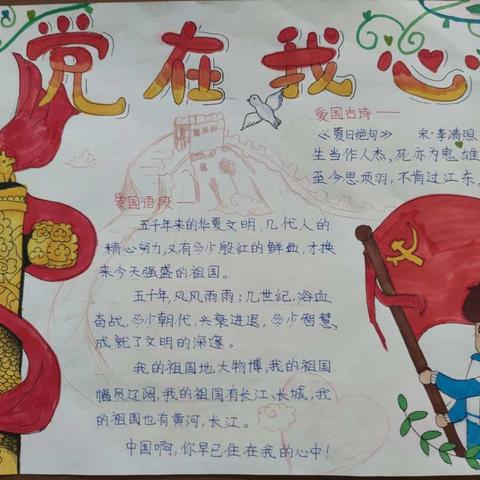 党在我心
爱国古诗
《夏日绝句》 宋·李清照
生当作人杰,死亦为鬼雄
至今思项羽,不肯过江东。
爱国语段
五千年来的华夏文明,几代人的
精心努力,又有多少殷红的鲜血,才换
来今天强盛的祖国。
五千年,风风雨雨;几世纪,浴血
奋战,多少朝代,兴衰进退,多少智慧,
成就了文明的深邃。
我的祖国地大物博,我的祖国
幅员辽阔,我的祖国有长江、长城,我
的祖国也有黄河,长江。
中国啊,你早已住在我的心中!